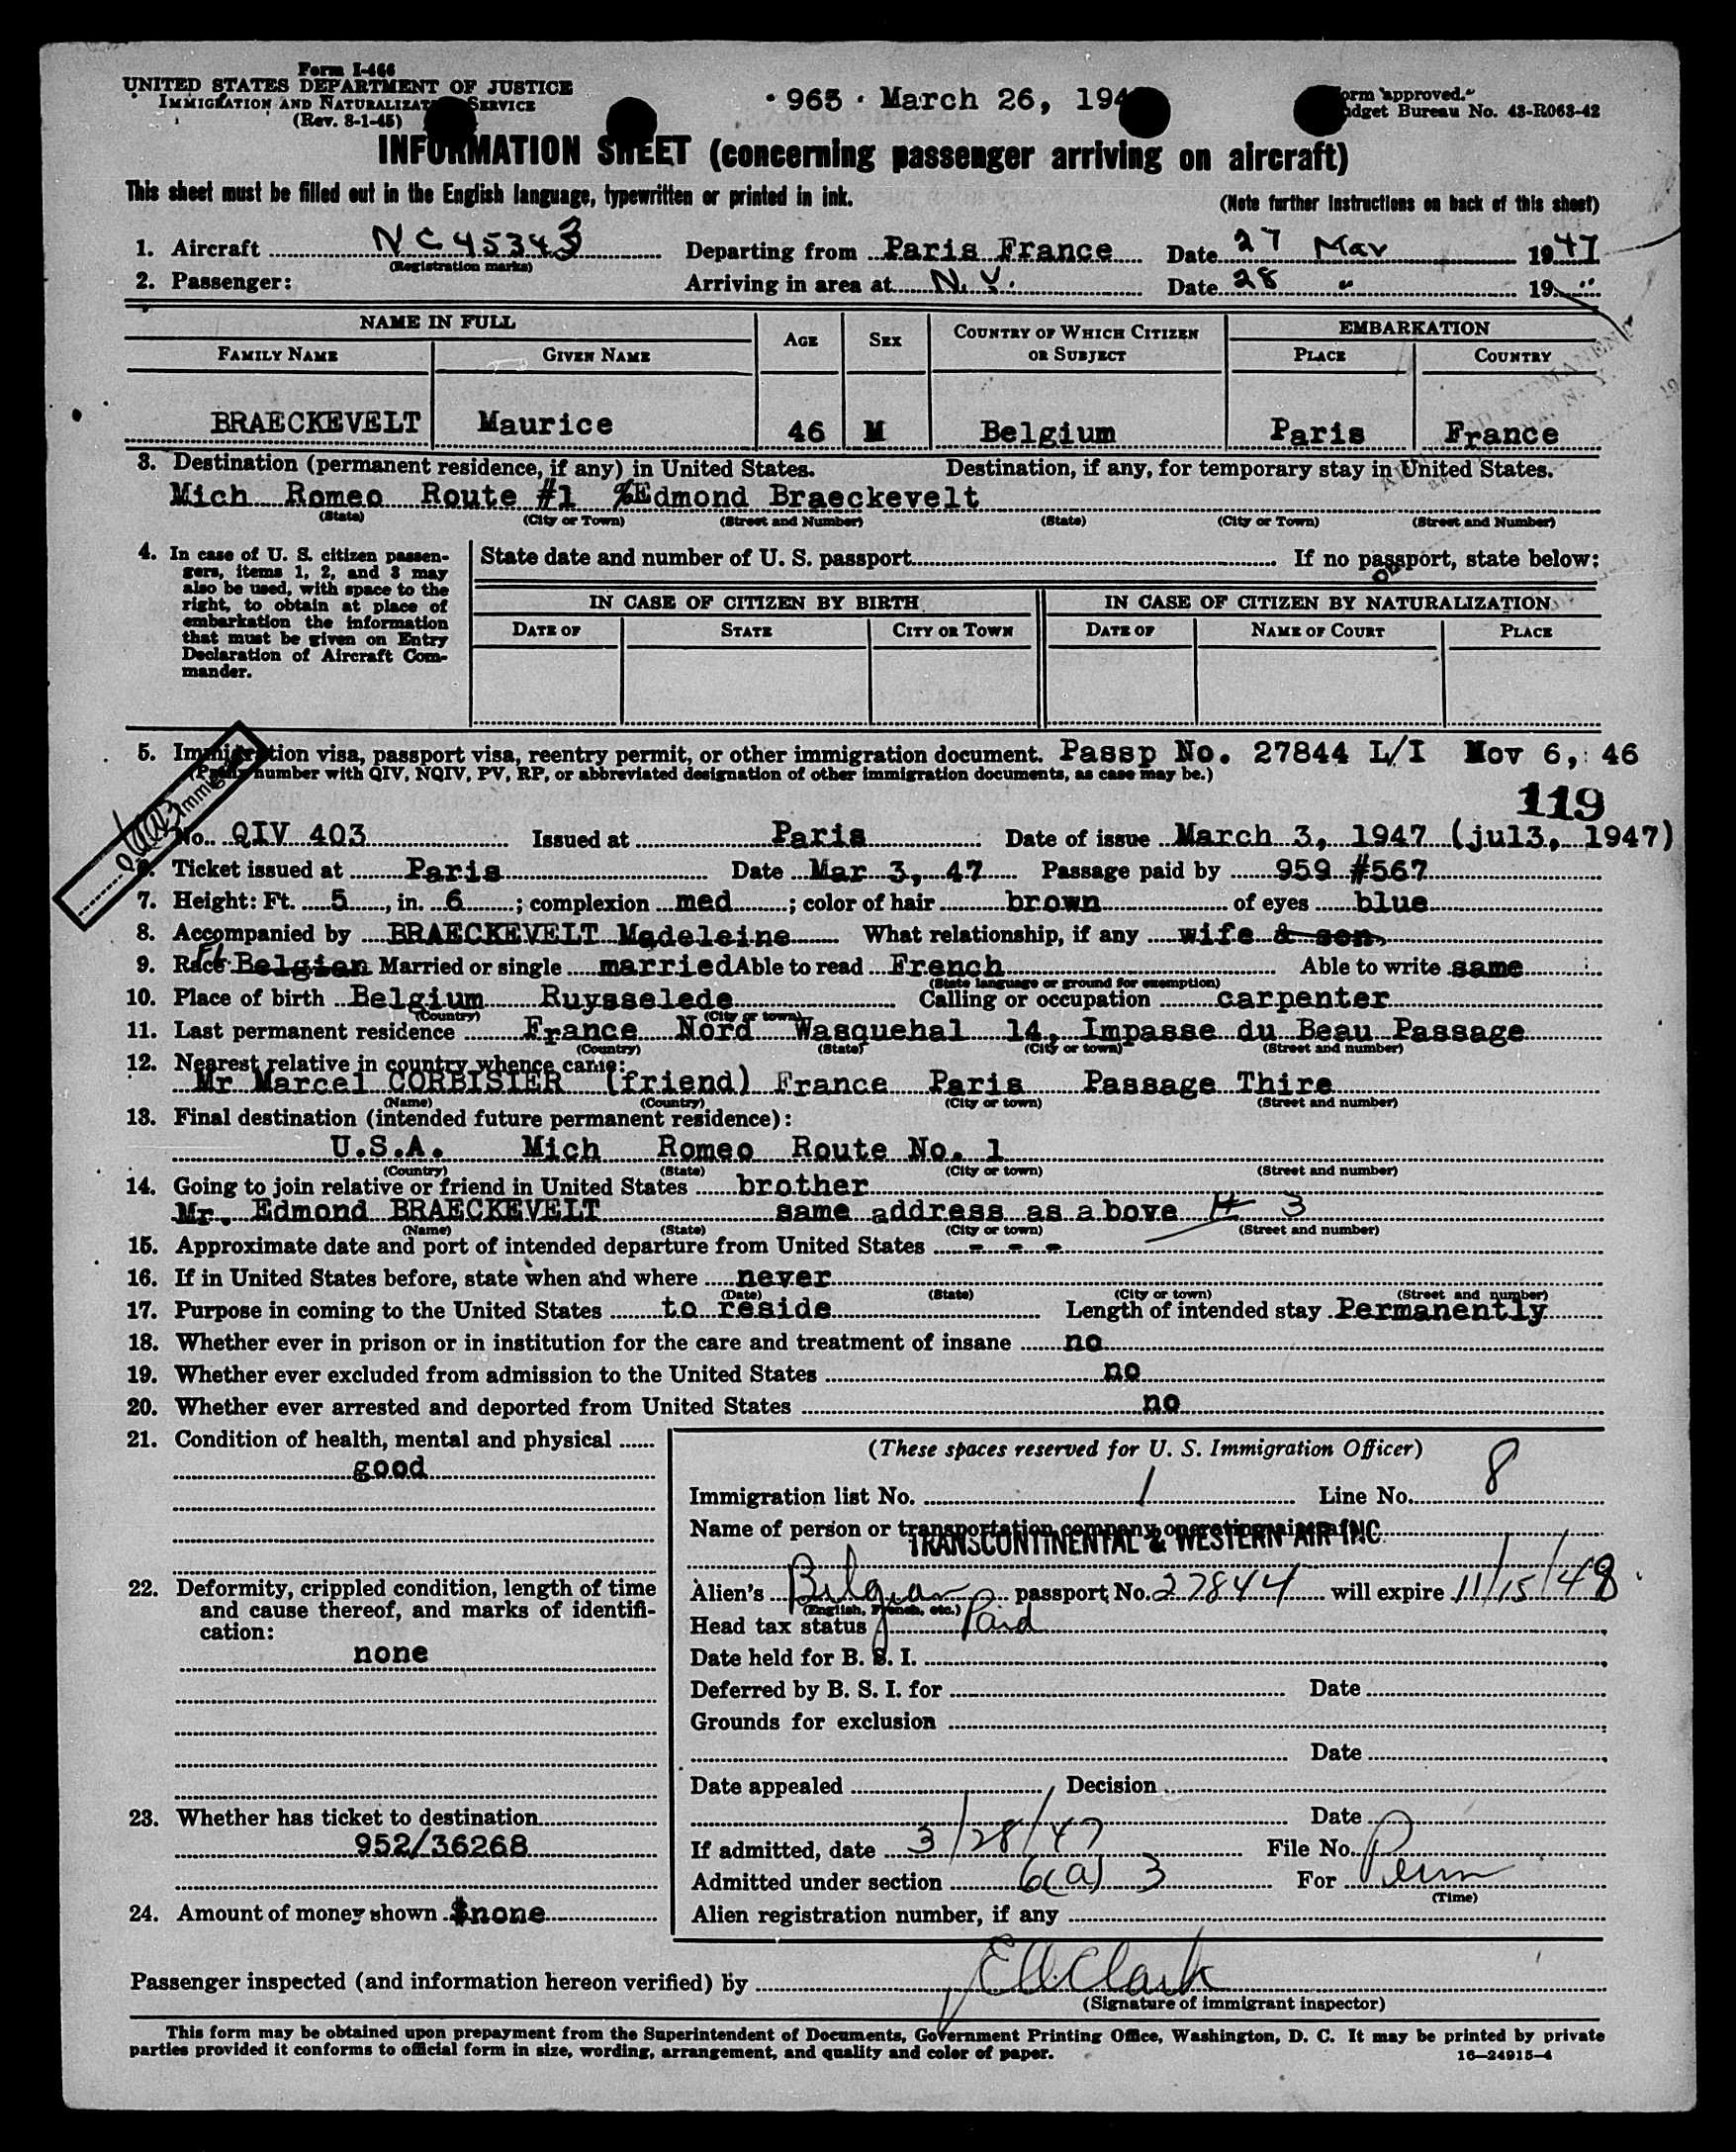 Form I-466
UNITED STATES DEPARTMENT OF JUSTICE
IMMIGRATION AND NATURALIZATION SERVICE
(Rev. 8-1-45)
965 · March 26, 194
Form approved.
Budget Bureau No. 43-R063-42
INFORMATION SHEET (concerning passenger arriving on aircraft)
This sheet must be filled out in the English language, typewritten or printed in ink.
(Note further instructions on back of this sheet)
1. Aircraft NC 45343 Departing from Paris France Date 27 Mar 1947
(Registration marks)
2. Passenger: Arriving in area at N.Y. Date 28 " 19 "
NAME IN FULL AGE SEX COUNTRY OF WHICH CITIZEN OR SUBJECT EMBARKATION
FAMILY NAME GIVEN NAME PLACE COUNTRY
BRAECKEVELT Maurice 46 M Belgium Paris France
3. Destination (permanent residence, if any) in United States. Destination, if any, for temporary stay in United States.
Mich Romeo Route #1 %Edmond Braeckevelt
(State) (City or Town) (Street and Number) (State) (City or Town) (Street and Number)
4. In case of U. S. citizen passengers, items 1, 2, and 3 may also be used, with space to the right, to obtain at place of embarkation the information that must be given on Entry Declaration of Aircraft Commander.
State date and number of U. S. passport If no passport, state below:
IN CASE OF CITIZEN BY BIRTH IN CASE OF CITIZEN BY NATURALIZATION
DATE OF STATE CITY OR TOWN DATE OF NAME OF COURT PLACE
5. Immigration visa, passport visa, reentry permit, or other immigration document. Passp No. 27844 L/I Nov 6, 46
number with QIV, NQIV, PV, RP, or abbreviated designation of other immigration documents, as case may be.)
119
No. QIV 403 Issued at Paris Date of issue March 3, 1947 (jul3, 1947)
6. Ticket issued at Paris Date Mar 3, 47 Passage paid by 959 #567
7. Height: Ft. 5, in. 6; complexion med; color of hair brown of eyes blue
8. Accompanied by BRAECKEVELT Madeleine What relationship, if any wife & son,
9. Race Belgian Married or single married Able to read French Able to write same
(State language or ground for exemption)
10. Place of birth Belgium Ruysselede Calling or occupation carpenter
(Country) (City or town)
11. Last permanent residence France Nord Wasquehal 14, Impasse du Beau Passage
(Country) (State) (City or town) (Street and number)
12. Nearest relative in country whence came:
Mr Marcel CORBISIER (friend) France Paris Passage Thire
(Name) (Country) (City or town) (Street and number)
13. Final destination (intended future permanent residence):
U.S.A. Mich Romeo Route No. 1
(Country) (State) (City or town) (Street and number)
14. Going to join relative or friend in United States brother
Mr. Edmond BRAECKEVELT same address as above # 3
(Name) (State) (City or town) (Street and number)
15. Approximate date and port of intended departure from United States - - -
16. If in United States before, state when and where never
(Date) (State) (City or town) (Street and number)
17. Purpose in coming to the United States to reside Length of intended stay Permanently
18. Whether ever in prison or in institution for the care and treatment of insane no
19. Whether ever excluded from admission to the United States no
20. Whether ever arrested and deported from United States no
21. Condition of health, mental and physical
good
22. Deformity, crippled condition, length of time and cause thereof, and marks of identification:
none
23. Whether has ticket to destination
952/36268
24. Amount of money shown $none
(These spaces reserved for U. S. Immigration Officer)
Immigration list No. 1 Line No. 8
Name of person or transportation company operating aircraft
TRANSCONTINENTAL & WESTERN AIR INC.
Alien's Belgian passport No. 27844 will expire 11/15/48
(English, French, etc.)
Head tax status Paid
Date held for B. S. I.
Deferred by B. S. I. for Date
Grounds for exclusion
Date
Date appealed Decision
Date
If admitted, date 3/28/47 File No.
Admitted under section 6(a) 3 For Perm
(Time)
Alien registration number, if any
Passenger inspected (and information hereon verified) by E W Clark
(Signature of immigrant inspector)
This form may be obtained upon prepayment from the Superintendent of Documents, Government Printing Office, Washington, D. C. It may be printed by private
parties provided it conforms to official form in size, wording, arrangement, and quality and color of paper.
16—24915-4